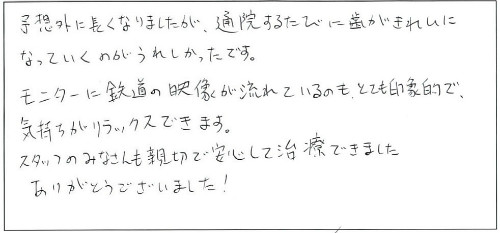 予想外に長くなりましたが、通院するたびに歯がきれいに
なっていくのがうれしかったです。
モニターに鉄道の映像が流れているのも、とても印象的で、
気持ちがリラックスできます。
スタッフのみなさんも親切で安心して治療できました
ありがとうございました!